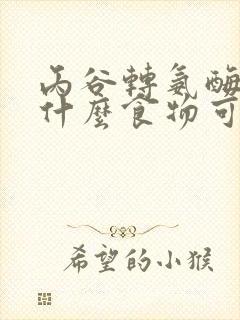 丙谷轉氨酶
什麼食物可
希望的小猴